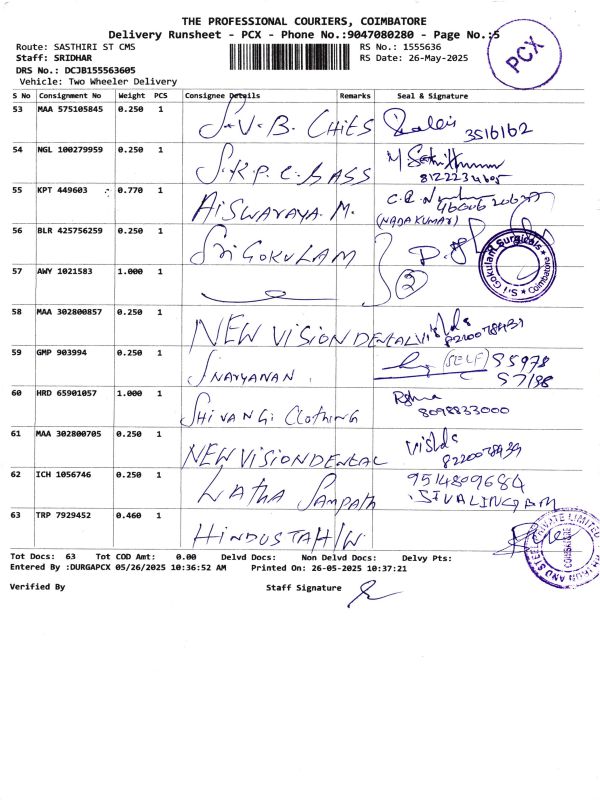 THE PROFESSIONAL COURIERS, COIMBATORE
Delivery Runsheet - PCX - Phone No.:9047080280 - Page No.:5
Route: SASTHIRI ST CMS
RS No.: 1555636
Staff: SRIDHAR
RS Date: 26-May-2025
DRS No.: DCJB155563605
Vehicle: Two Wheeler Delivery
PCX
S No Consignment No Weight PCS Consignee Details Remarks Seal & Signature
53 MAA 575105845 0.250 1 S.V.B. CHITS 3516162
54 NGL 100279959 0.250 1 S.K.P.C. GASS M
8122234605
55 KPT 449603 0.770 1 AISWARAYA. M.
(NADAKUMAR)
56 BLR 425756259 0.250 1 SRI GOKULAM
Sri Gokulam Surgicals * Coimbatore *
57 AWY 1021583 1.000 1 2
58 MAA 302800857 0.250 1 NEW VISION DENTAL
8220078439
59 GMP 903994 0.250 1 SNARYANAN. (SELF) S5978
S7/98
60 HRD 65901057 1.000 1 SHIVANGI CLOTHING
8098833000
61 MAA 302800705 0.250 1 NEW VISION DENTAL
8220078439
62 ICH 1056746 0.250 1 Latha Sampath 9514809684
SIVALINGAM
63 TRP 7929452 0.460 1 HINDUSTAH/W.
PRIVATE LIMITED
COIMBATORE
Tot Docs: 63 Tot COD Amt: 0.00 Delvd Docs: Non Delvd Docs: Delvy Pts:
Entered By :DURGAPCX 05/26/2025 10:36:52 AM Printed On: 26-05-2025 10:37:21
Verified By Staff Signature